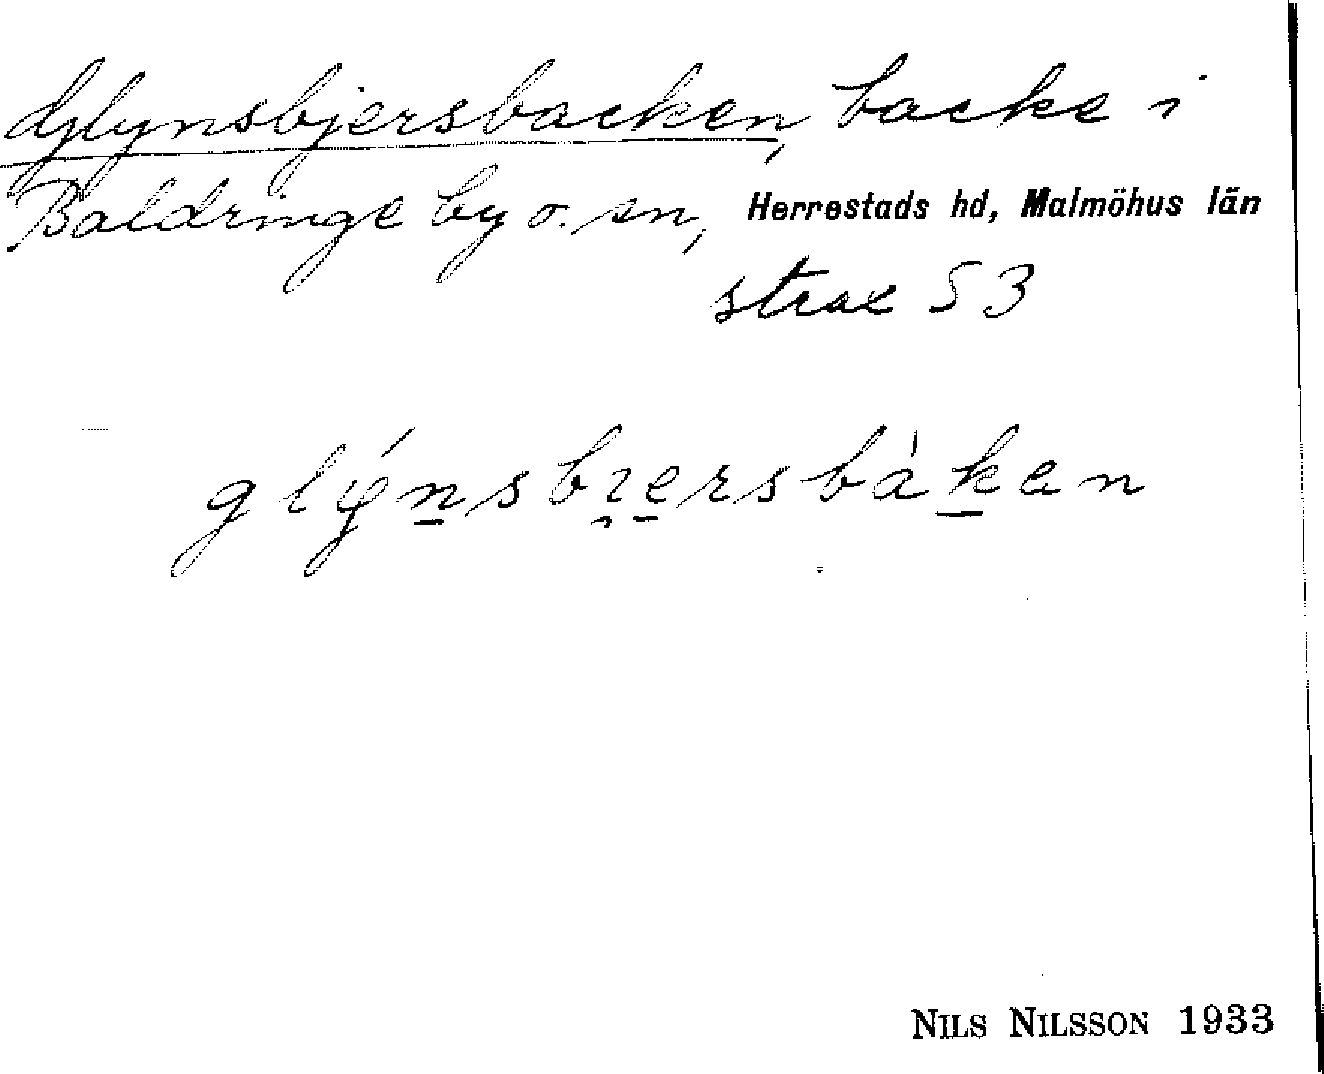 Glynsbjersbacken, backe i
Baldringe by o. sn, Herrestads hd, Malmöhus län
strax S 3
glýnsbi̯ersbàken
NILS NILSSON 1933